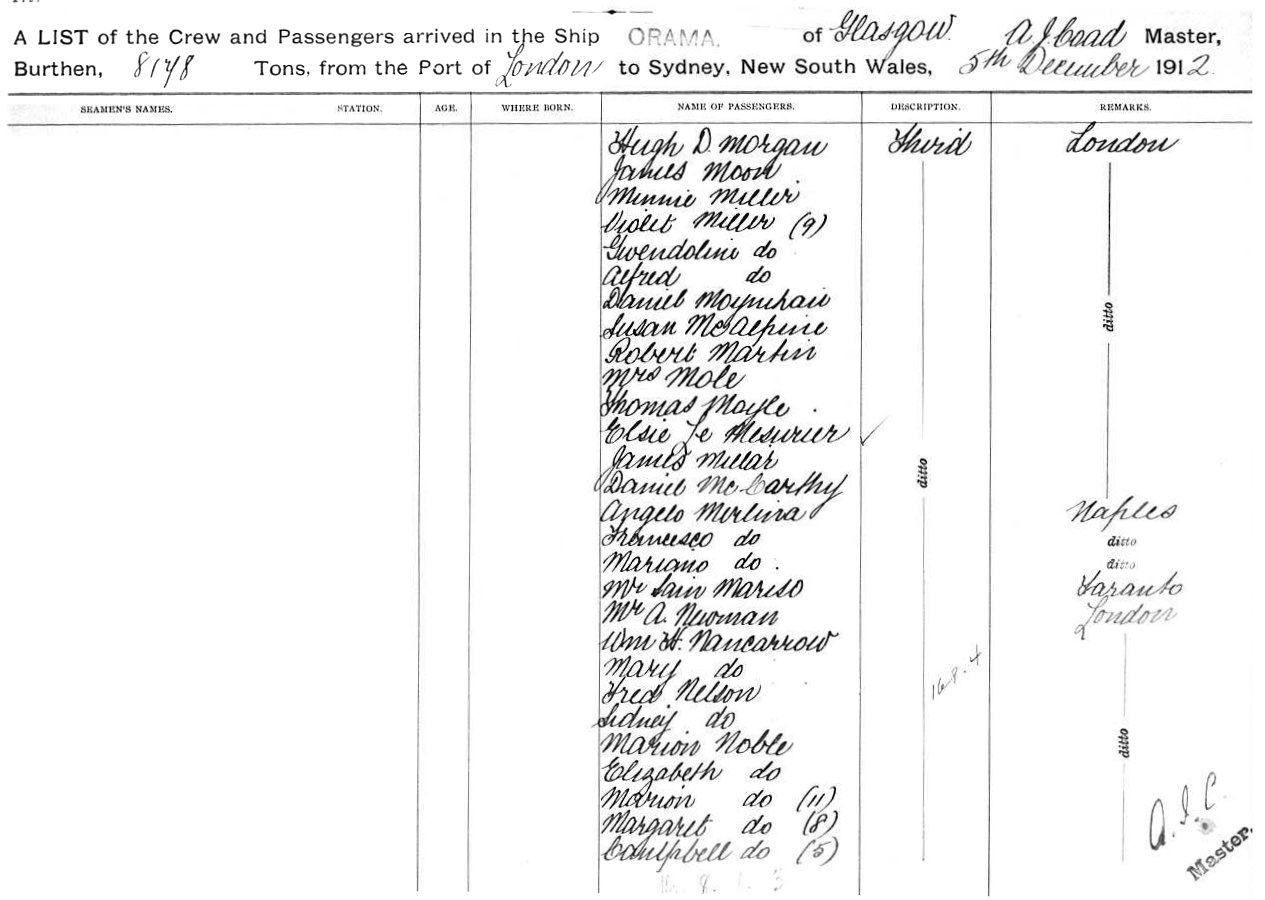 A LIST of the Crew and Passengers arrived in the Ship ORAMA. of Glasgow. A. J. Coad Master,
Burthen, 8178 Tons, from the Port of London to Sydney, New South Wales, 5th December 1912.
SEAMEN'S NAMES. STATION. AGE. WHERE BORN. NAME OF PASSENGERS. DESCRIPTION. REMARKS.
Hugh D. Morgan Third London
James Moon
Minnie Miller
Violet Miller (9)
Gwendoline do
Alfred do
Daniel Moynihan
Susan McAlpine ditto
Robert Martin
Mrs Mole
Thomas Moyle
Elsie Le Mesurier
James Millar ditto
Daniel McCarthy
Angelo Merlina Naples
Francesco do ditto
Mariano do ditto
Mr Sain Mariso Taranto
Mr A. Newman London
Wm H. Nancarrow
Mary do
Fred Nelson 168.4
Sidney do
Marion Noble ditto
Elizabeth do
Marion do (11)
Margaret do (8) A. J. C.
Campbell do (5) Master.